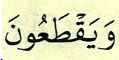 وَيَقْطَعُونَ